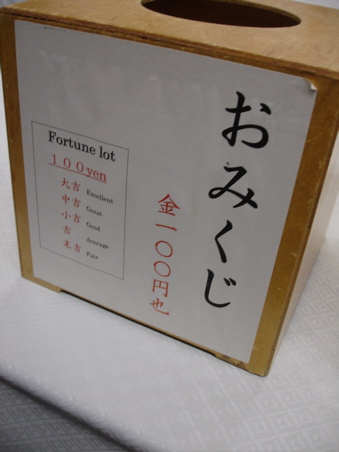 おみくじ
金一〇〇円也
Fortune lot
１００yen
大吉 Excellent
中吉 Great
小吉 Good
吉 Average
末吉 Fair